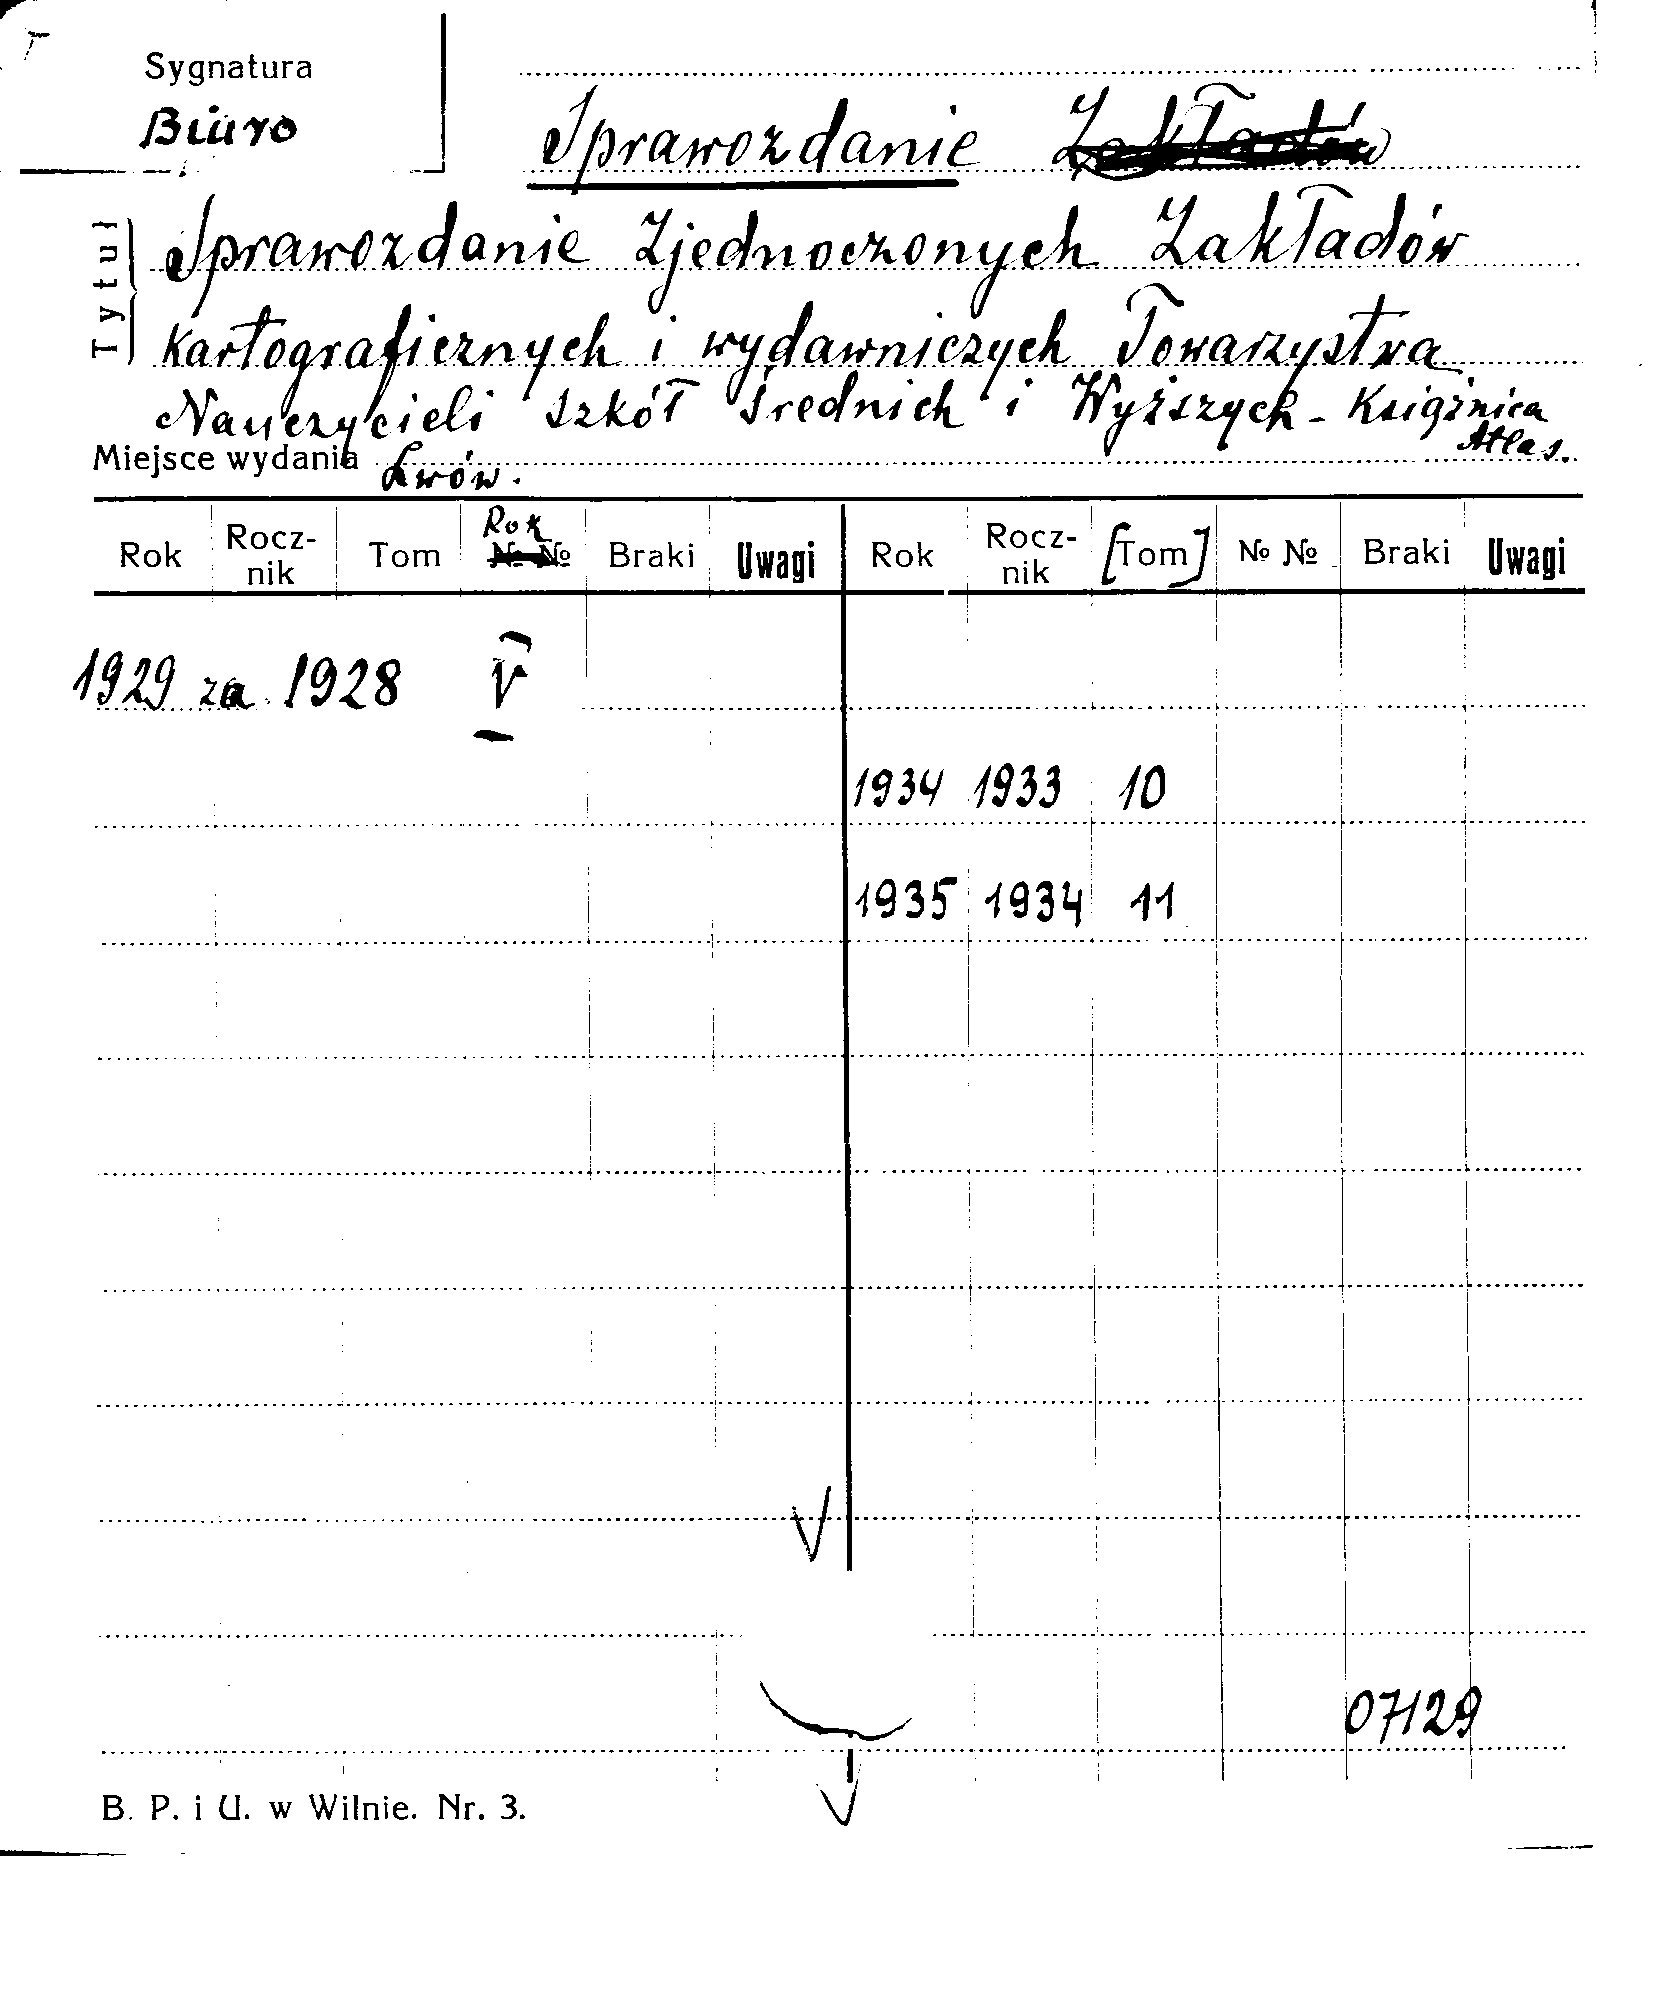 Sygnatura
Biuro
Sprawozdanie Zakładów
Tytuł
Sprawozdanie Zjednoczonych Zakładów
Kartograficznych i wydawniczych Towarzystwa
Nauczycieli szkół średnich i Wyższych - Książnica
Atlas.
Miejsce wydania Lwów.
Rok Rocz-nik Tom Rok № № Braki Uwagi Rok Rocz-nik [Tom] № № Braki Uwagi
1929 za 1928 V
1934 1933 10
1935 1934 11
07129
B. P. i U. w Wilnie. Nr. 3.